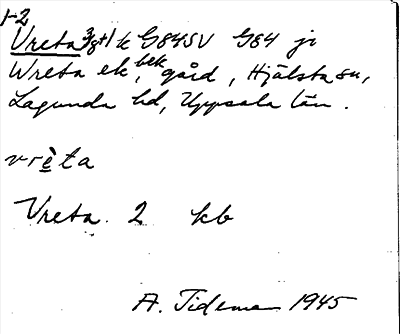 1-2
Vreta 3/8+1 k G84SV G84 jr
Wreta ek, bek, gård, Hjälsta sn,
Lagunda hd, Uppsala län.
vrèta
Vreta. 2 kb
A. Tideman 1945